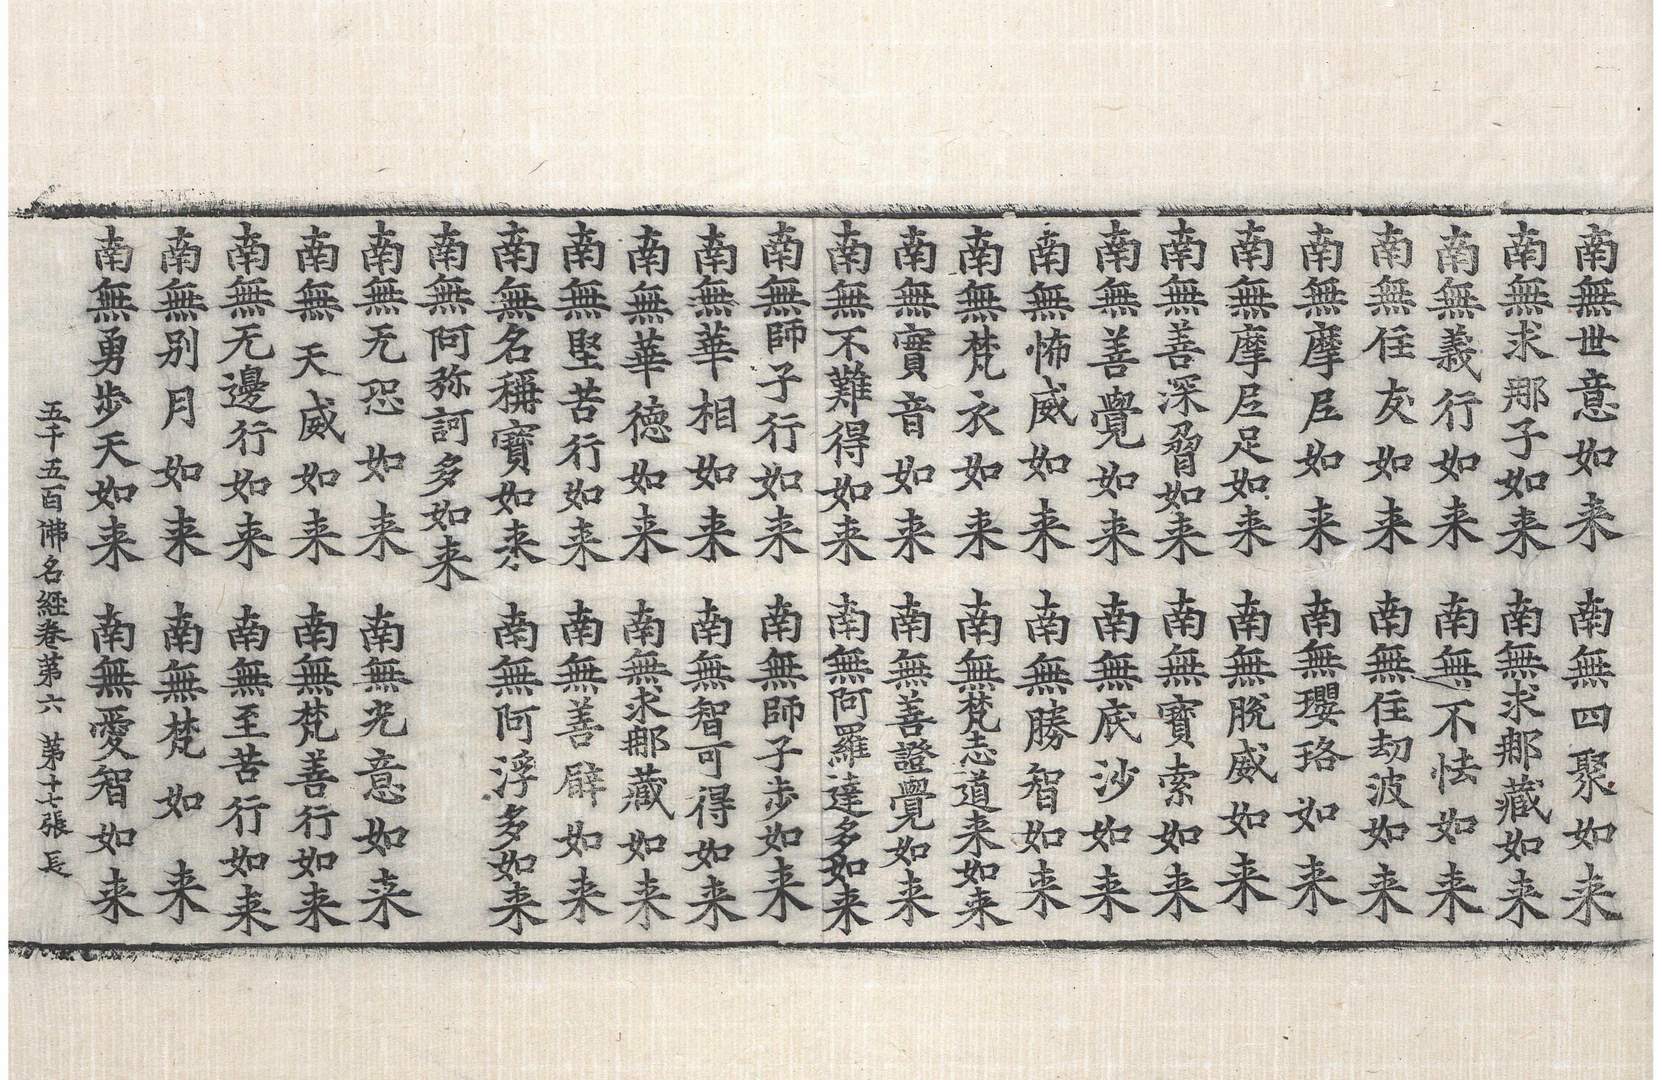 南無世意如来 南無四聚如来
南無求那子如来 南無求那藏如来
南無義行如来 南無不怯如来
南無住友如来 南無住劫波如来
南無摩𡰱如来 南無瓔珞如来
南無摩𡰱足如来 南無脫威如来
南無善深如来 南無寶索如来
南無善覺如来 南無底沙如来
南無怖威如来 南無勝智如来
南無梵衣如来 南無梵志道来如来
南無寶音如来 南無善證覺如来
南無不難得如来 南無阿羅達多如来
南無師子行如来 南無師子步如来
南無華相如来 南無智可得如来
南無華德如来 南無求那藏如来
南無堅苦行如来 南無善辟如来
南無名稱寶如来 南無阿浮多如来
南無阿弥訶多如来
南無无恐如来 南無光意如来
南無天威如来 南無梵善行如来
南無无邊行如来 南無至苦行如来
南無別月如来 南無梵如来
南無勇步天如来 南無愛智如来
五千五百佛名經卷第六 第十七張 長